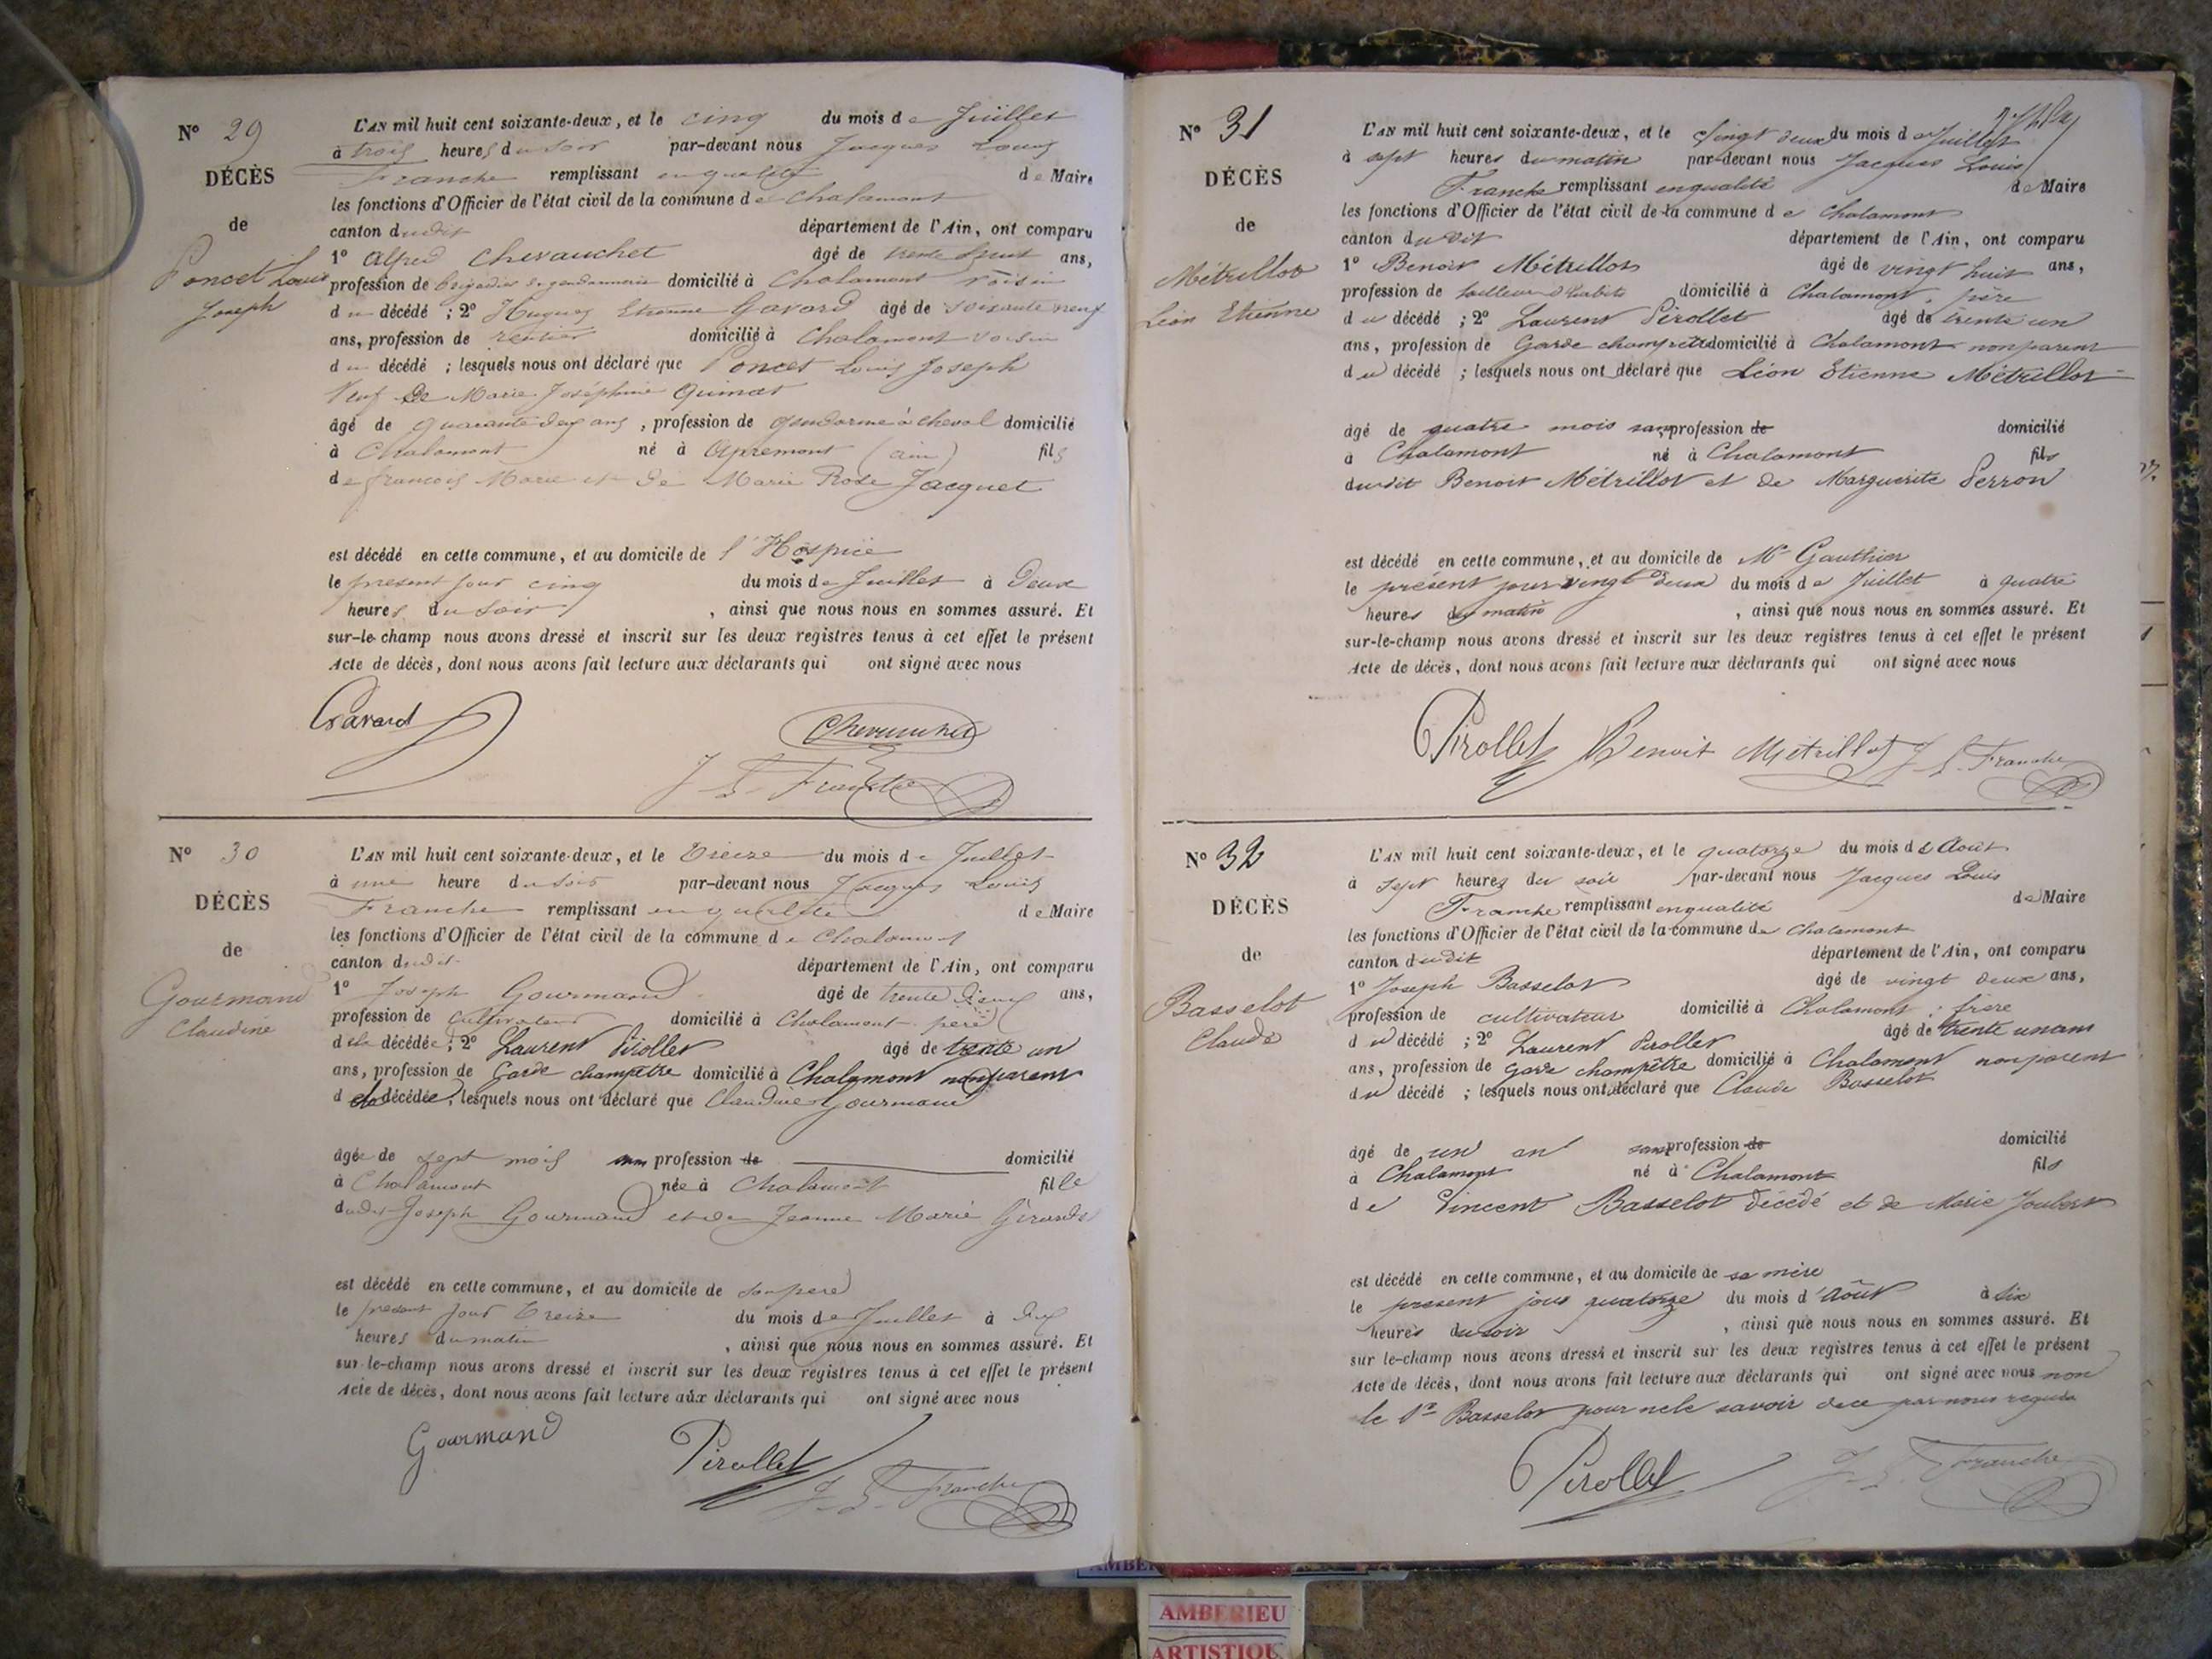 N° 29
DÉCÈS
de
Poncet Louis
Joseph
L'AN mil huit cent soixante-deux, et le cinq du mois de Juillet
à trois heures du soir par-devant nous Jacques Louis
Franche remplissant en qualité de Maire
les fonctions d'Officier de l'état civil de la commune de Chalamont
canton dudit département de l'Ain, ont comparu
1° Alfred Chevauchet âgé de trente huit ans,
profession de brigadier de gendarmerie domicilié à Chalamont voisin
du décédé ; 2° Hugues Etienne Gavard âgé de soixante neuf
ans, profession de rentier domicilié à Chalamont voisin
du décédé ; lesquels nous ont déclaré que Poncet Louis Joseph
Veuf de Marie Joséphine
âgé de quarante deux ans, profession de gendarme à cheval domicilié
à Chalamont né à Apremont (ain) fils
de francois Marie et de Marie Rose Jacquet
est décédé en cette commune, et au domicile de l'Hospice
le présent jour cinq du mois de Juillet à Deux
heures du soir, ainsi que nous nous en sommes assuré. Et
sur-le-champ nous avons dressé et inscrit sur les deux registres tenus à cet effet le présent
Acte de décès, dont nous avons fait lecture aux déclarants qui ont signé avec nous
Gavard
Chevauchet
J L Franche
N° 30
DÉCÈS
de
Gourmand
Claudine
L'AN mil huit cent soixante-deux, et le treize du mois de Juillet
à une heure du soir par-devant nous Jacques Louis
Franche remplissant en qualité de Maire
les fonctions d'Officier de l'état civil de la commune de Chalamont
canton dudit département de l'Ain, ont comparu
1° Joseph Gourmand âgé de trente ans,
profession de cultivateur domicilié à Chalamont pere
de la décédée ; 2° Laurent Pirollet âgé de trente un
ans, profession de Garde champêtre domicilié à Chalamont non parent
de la décédée, lesquels nous ont déclaré que Claudine Gourmand
âgée de sept mois sans profession de domicilié
à Chalamont née à Chalamont fille
dudit Joseph Gourmand et de Jeanne Marie
est décédé en cette commune, et au domicile de son pere
le présent jour treize du mois de Juillet à
heures du matin, ainsi que nous nous en sommes assuré. Et
sur-le-champ nous avons dressé et inscrit sur les deux registres tenus à cet effet le présent
Acte de décès, dont nous avons fait lecture aux déclarants qui ont signé avec nous
Gourmand Pirollet
J L Franche
N° 31
DÉCÈS
de
Métrillot
Léon Etienne
L'AN mil huit cent soixante-deux, et le vingt deux du mois de Juillet
à sept heures du matin par-devant nous Jacques Louis
Franche remplissant en qualité de Maire
les fonctions d'Officier de l'état civil de la commune de Chalamont
canton dudit département de l'Ain, ont comparu
1° Benoit Métrillot âgé de vingt huit ans,
profession de tailleur d'habits domicilié à Chalamont, père
du décédé ; 2° Laurent Pirollet âgé de trente un
ans, profession de Garde champêtre domicilié à Chalamont non parent
du décédé ; lesquels nous ont déclaré que Léon Etienne Métrillot
âgé de quatre mois sans profession de domicilié
à Chalamont né à Chalamont fils
dudit Benoit Métrillot et de Marguerite Perron
est décédé en cette commune, et au domicile de Mr Gauthier
le présent jour vingt deux du mois de Juillet à quatre
heures du matin, ainsi que nous nous en sommes assuré. Et
sur-le-champ nous avons dressé et inscrit sur les deux registres tenus à cet effet le présent
Acte de décès, dont nous avons fait lecture aux déclarants qui ont signé avec nous
Pirollet Benoit Métrillot J L Franche
N° 32
DÉCÈS
de
Basselot
Claude
L'AN mil huit cent soixante-deux, et le quatorze du mois de Août
à sept heures du soir par-devant nous Jacques Louis
Franche remplissant en qualité de Maire
les fonctions d'Officier de l'état civil de la commune de Chalamont
canton dudit département de l'Ain, ont comparu
1° Joseph Basselot âgé de vingt deux ans,
profession de cultivateur domicilié à Chalamont ; frère
du décédé ; 2° Laurent Pirollet âgé de trente un ans
ans, profession de garde champêtre domicilié à Chalamont non parent
du décédé ; lesquels nous ont déclaré que Claude Basselot
âgé de un an sans profession de domicilié
à Chalamont né à Chalamont fils
de Vincent Basselot décédé et de Marie Joubert
est décédé en cette commune, et au domicile de sa mère
le présent jour quatorze du mois d'Août à six
heures du soir, ainsi que nous nous en sommes assuré. Et
sur le-champ nous avons dressé et inscrit sur les deux registres tenus à cet effet le présent
Acte de décès, dont nous avons fait lecture aux déclarants qui ont signé avec nous non
le Sr Basselot pour ne le savoir de ce par nous requis
Pirollet J L Franche
AMBERIEU
ARTISTIQU